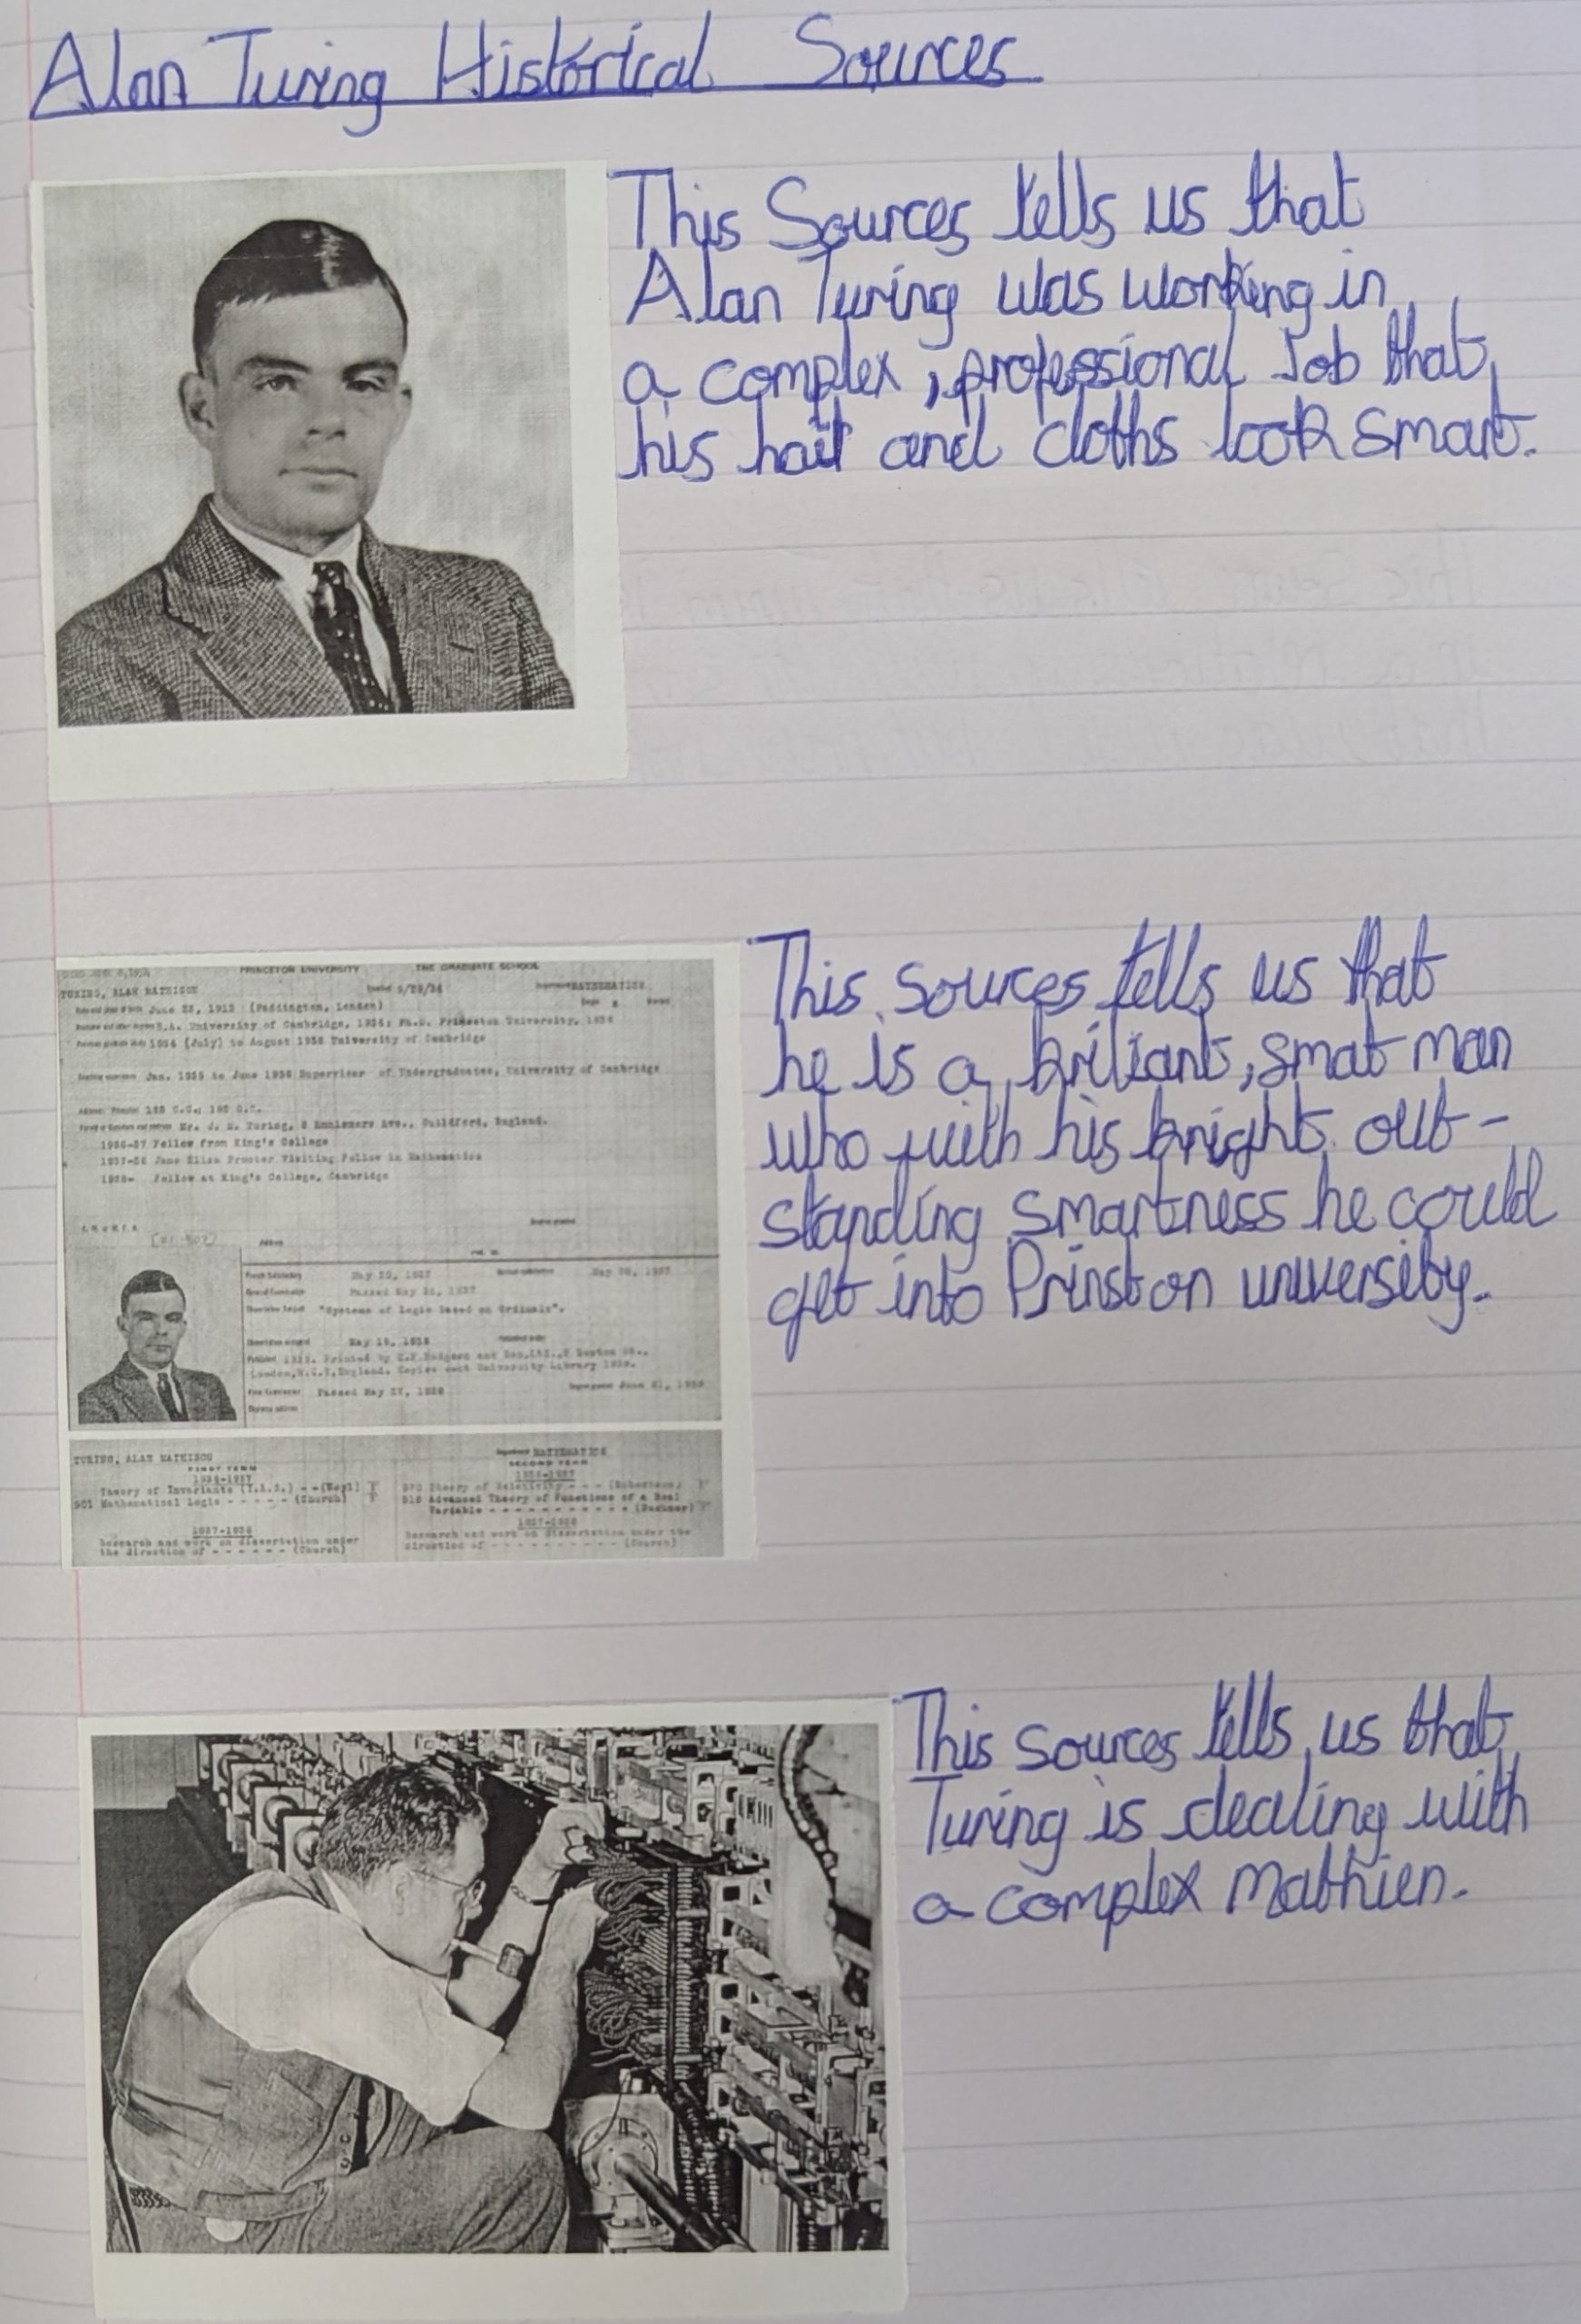 Alan Turing Historical Sources
This Sources tells us that
Alan Turing was working in
a complex, professional Job that
his hair and cloths look smart.
This sources tells us that
he is a briliant, smat man
who with his bright out-
standing smartness he could
get into Prinston university.
PRINCETON UNIVERSITY THE GRADUATE SCHOOL
TURING, ALAN MATHISON MATHEMATICS
June 23, 1912 (Paddington, London)
B.A. University of Cambridge, 1934; Ph.D. Princeton University, 1938
(July) to August 1936 University of Cambridge
Jan. 1935 to June 1936 Supervisor of Undergraduates, University of Cambridge
Mr. J. M. Turing, 8 Ennismore Ave., Guildford, England.
1936-37 Fellow from King's College
1937-38 Jane Eliza Procter Visiting Fellow in Mathematics
1938- Fellow at King's College, Cambridge
Passed May
"Systems of Logic based on Ordinals".
May 1938
Printed by C.F. Hodgson and Son, Ltd.,
London, England. Copies sent University Library
Passed May 1938 June 21, 1938
TURING, ALAN MATHISON MATHEMATICS
FIRST TERM SECOND TERM
1936-1937 1936-1937
Theory of Invariants (Weyl) Theory of Relativity - - - (Robertson)
Mathematical Logic - - - - - (Church) Advanced Theory of Functions of a Real
Variable - - - - - - - - - - (Bochner)
1937-1938 1937-1938
Research and work on dissertation under Research and work on dissertation under the
the direction of - - - - - - (Church) direction of - - - - - - - - - - (Church)
This sources tells us that
Turing is dealing with
a complex Mathien.